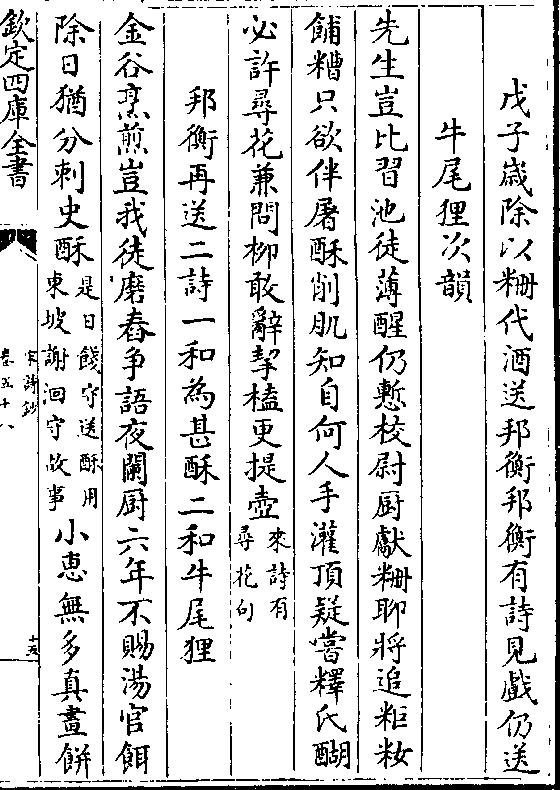 戊子歳除以粣代酒送邦衡邦衡有詩見戲仍送
牛尾狸次韻
先生豈比習池徒薄醒仍慙校尉厨獻粣聊將追粔籹
餔糟只欲伴屠酥削肌知自何人手灌頂疑嘗釋氏醐
必許尋花兼問柳敢辭挈榼更提壺来詩有尋花句
邦衡再送二詩一和為甚酥二和牛尾狸
金谷烹煎豈我徒磨舂争語夜闌厨六年不賜湯官餌
除日猶分刺史酥是日餞守送酥用東坡謝泗守故事小惠無多真畫餅
欽定四庫全書
宋詩鈔
卷五十八
十五